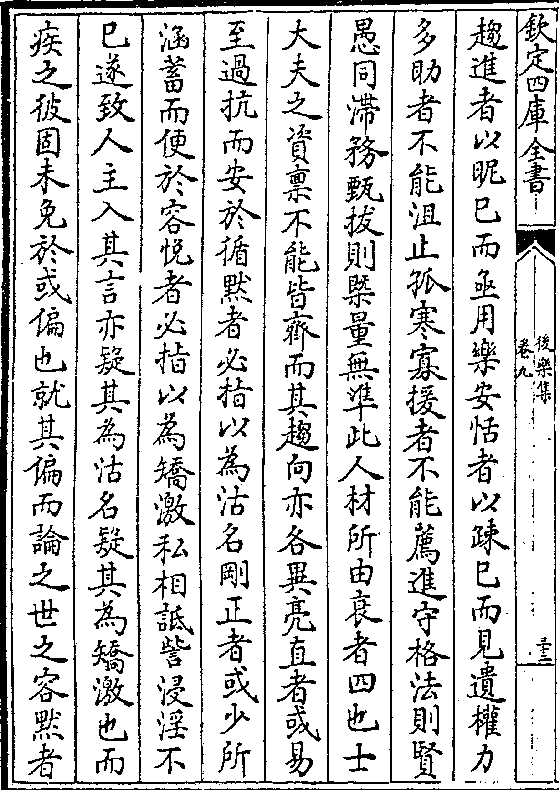 欽定四庫全書
後樂集
卷九
三十二
趨進者以昵已而亟用樂安恬者以疎已而見遺權力
多助者不能沮止孤寒寡援者不能薦進守格法則賢
愚同滯務甄拔則槩量無準此人材所由衰者四也士
大夫之資禀不能皆齊而其趨向亦各異亮直者或易
至過抗而安於循黙者必指以為沽名剛正者或少所
涵蓄而便於容悦者必指以為矯激私相詆訾浸淫不
已遂致人主入其言亦疑其為沽名疑其為矯激也而
疾之彼固未免於或偏也就其偏而論之世之容黙者